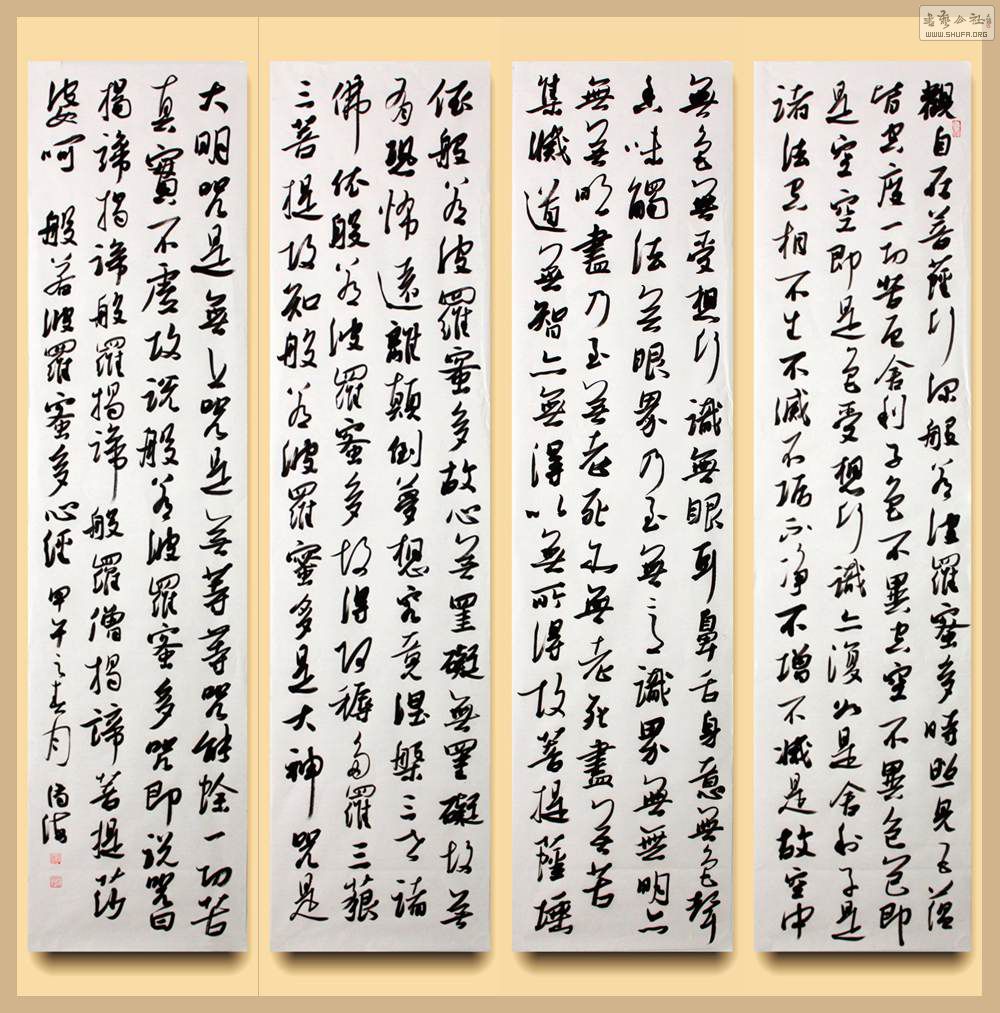 觀自在菩薩行深般若波羅蜜多時照見五蘊
皆空度一切苦厄舍利子色不異空空不異色色即
是空空即是色受想行識亦復如是舍利子是
諸法空相不生不滅不垢不淨不增不減是故空中
無色無受想行識無眼耳鼻舌身意無色聲
香味觸法無眼界乃至無意識界無無明亦
無無明盡乃至無老死亦無老死盡無苦
集滅道無智亦無得以無所得故菩提薩埵
依般若波羅蜜多故心無罣礙無罣礙故無
有恐怖遠離顛倒夢想究竟涅槃三世諸
佛依般若波羅蜜多故得阿耨多羅三藐
三菩提故知般若波羅蜜多是大神咒是
大明咒是無上咒是無等等咒能除一切苦
真實不虛故說般若波羅蜜多咒即說咒曰
揭諦揭諦般羅揭諦般羅僧揭諦菩提莎
婆呵 般若波羅蜜多心經 甲午之春月
书艺公社
WWW.SHUFA.ORG